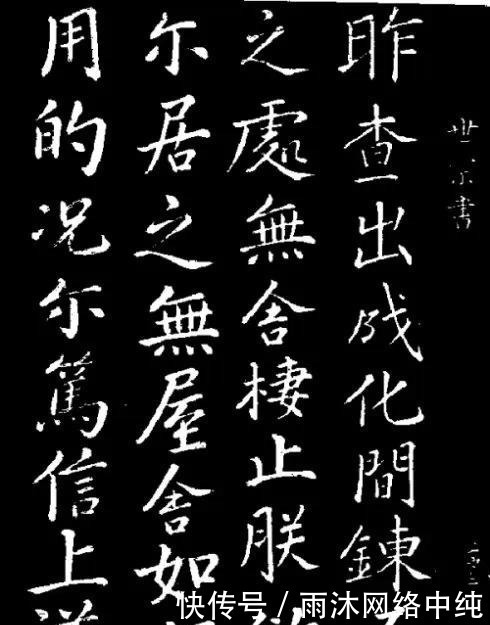 世宗書
昨查出成化間鍊
之處無舍棲止朕
尔居之無屋舍如
用的况尔篤信上
快传号 / 雨沐网络中纯